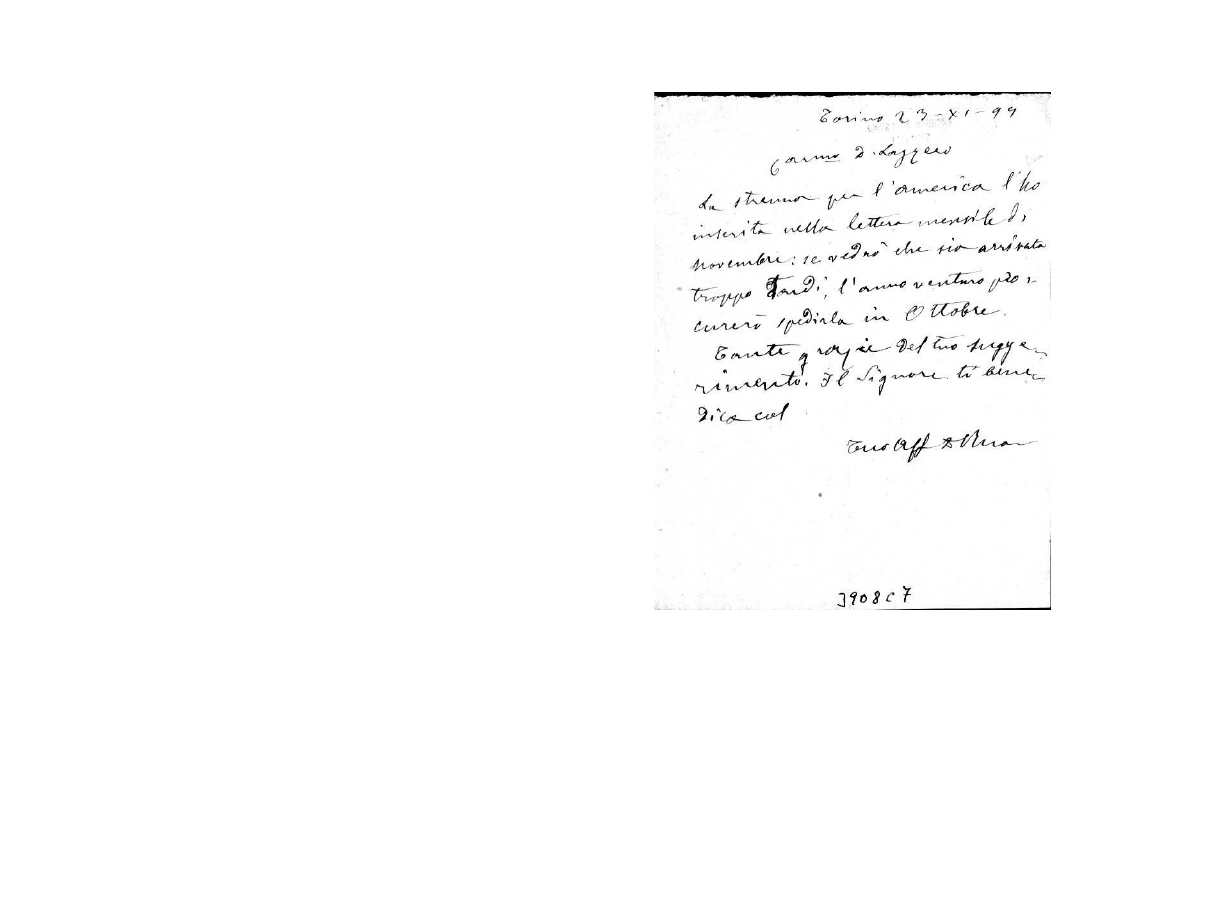 Torino 23-XI-99
Carmo D. Lazzero
La strenna per l'america l'ho
inserita nella lettera mensile di
Novembre: se vedrò che sia arrivata
troppo tardi, l'anno venturo pro-
curerò spedirla in Ottobre.
Tante grazie del tuo sugge-
rimento. Il Signore ti bene-
dica col
Tuo Aff D Rua
3908C7